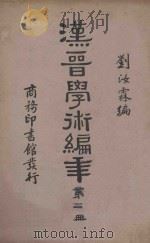 劉汝霖編
漢晉學術編年
第二冊
商務印書館發行